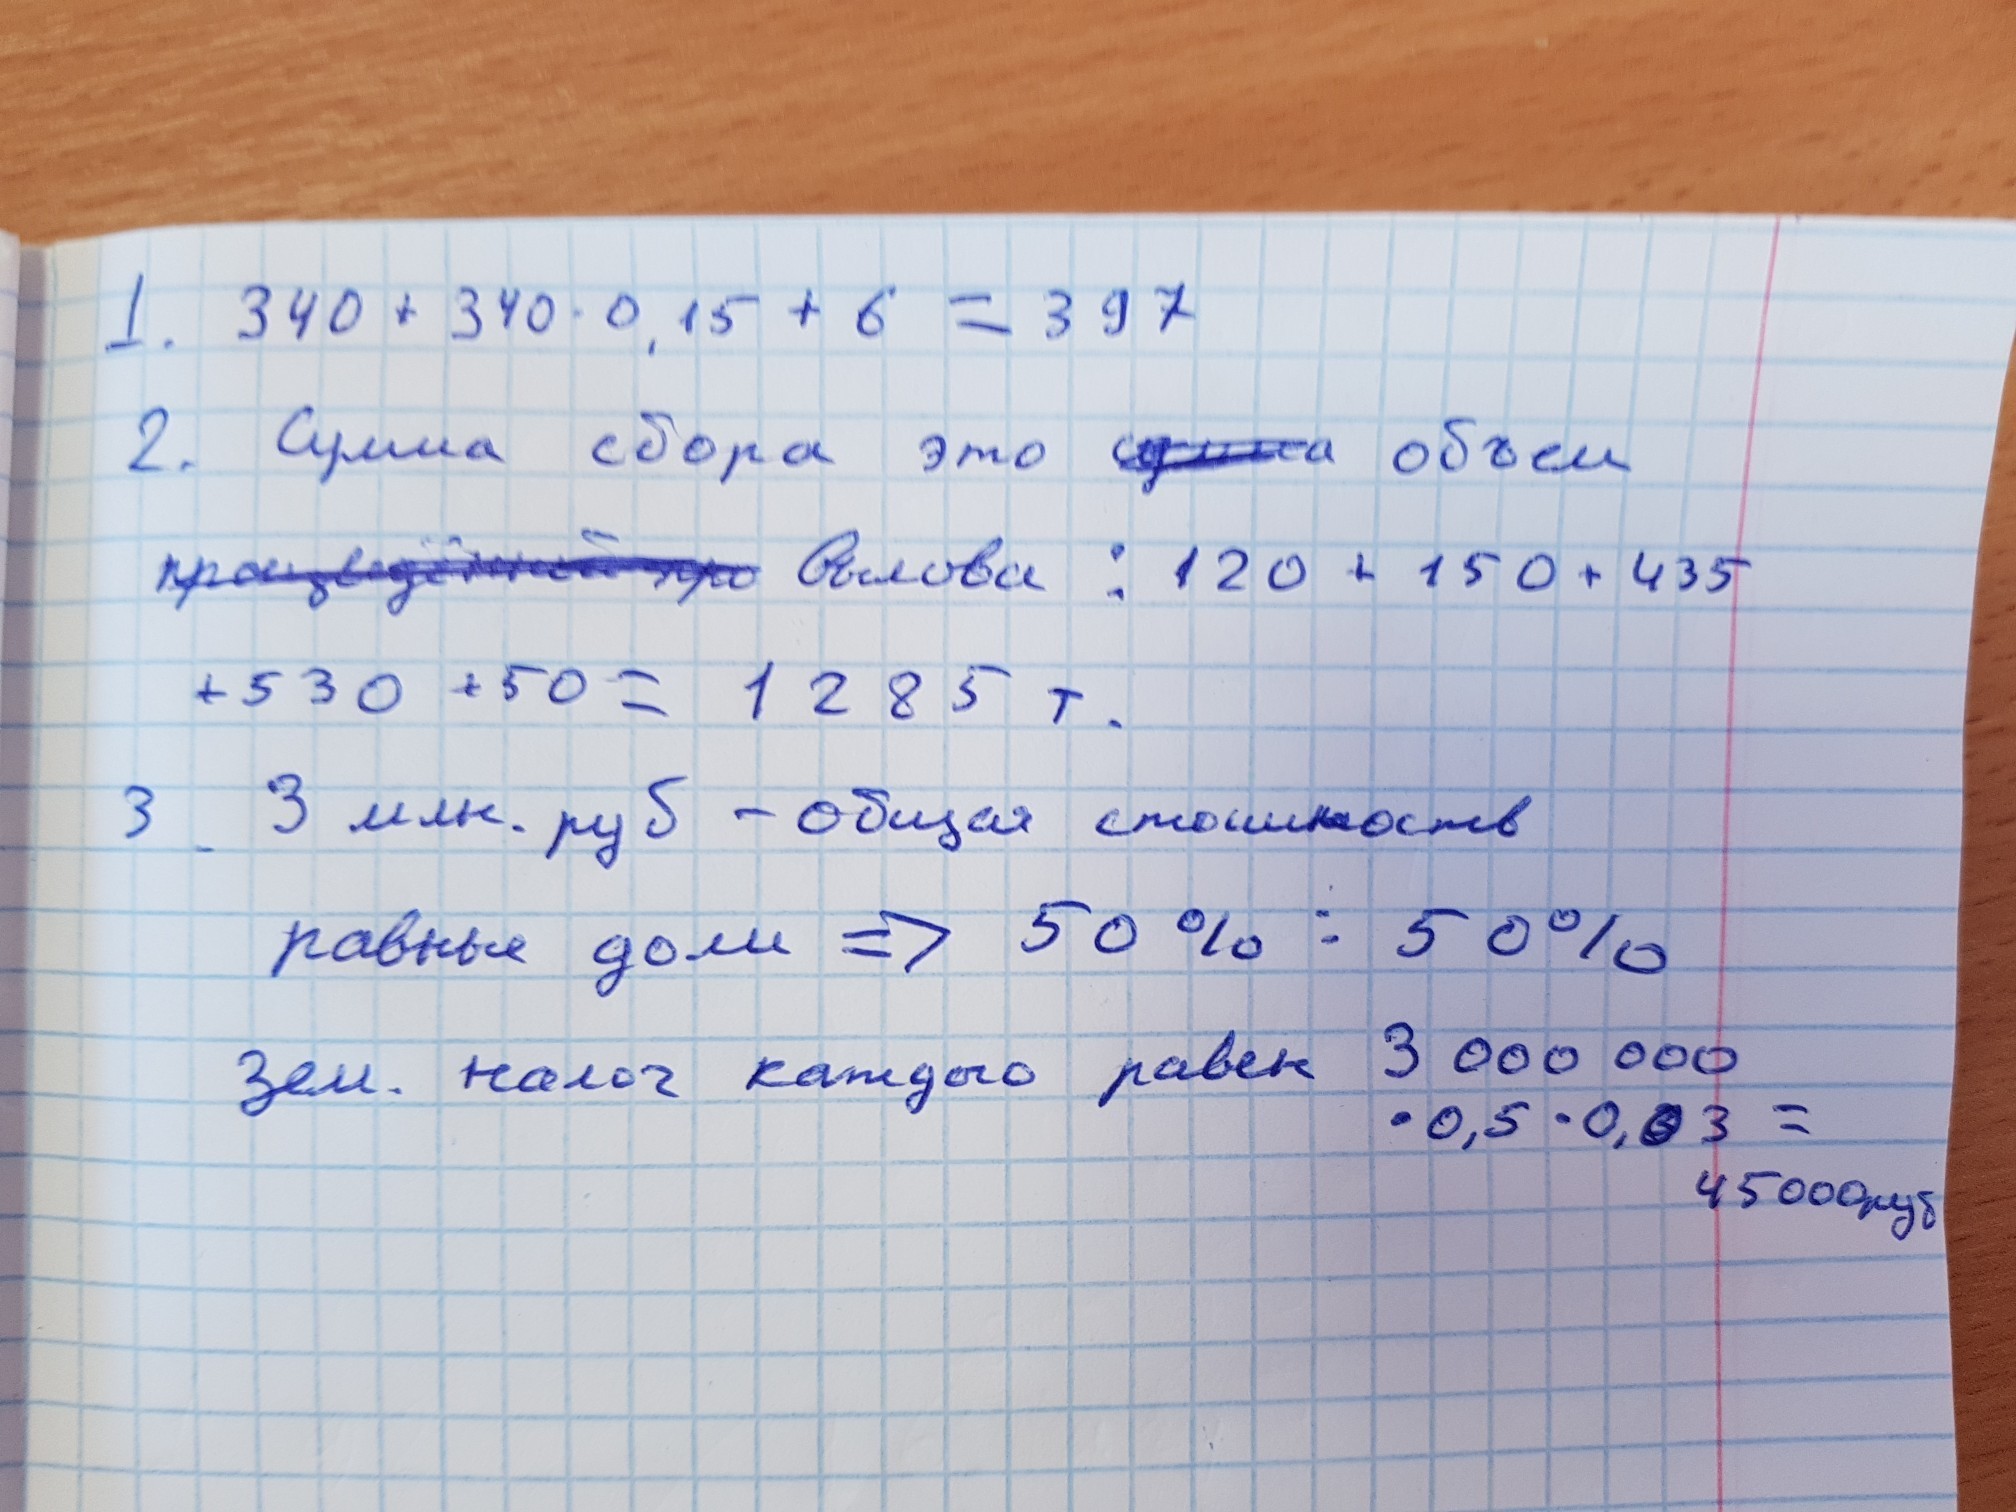 1. 340 + 340 · 0,15 + 6 = 397
2. Сумма сбора это сумма объем
произведённый про Вылова : 120 + 150 + 435
+ 530 + 50 = 1285 т.
3. 3 млн. руб – общая стоимость
равные доли => 50% : 50%
Зем. налог каждого равен 3 000 000
· 0,5 · 0,03 =
45000руб